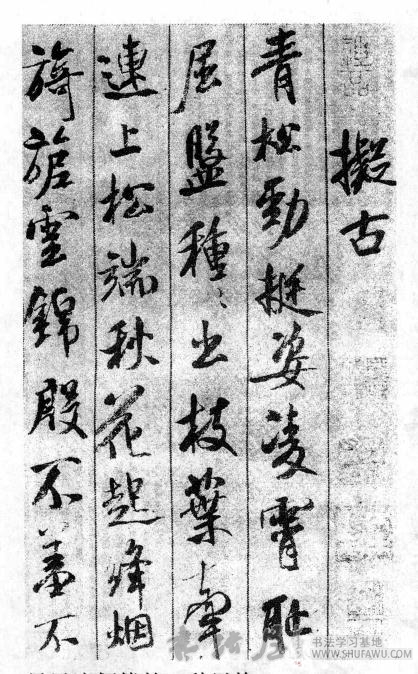 擬古
青松勁挺姿凌霄耻
屈盤種〻出枝葉牽
連上松端秋花起絳烟
旖旎雲錦殷不羞不
书法屋
书法学习基地
WWW.SHUFAWU.COM